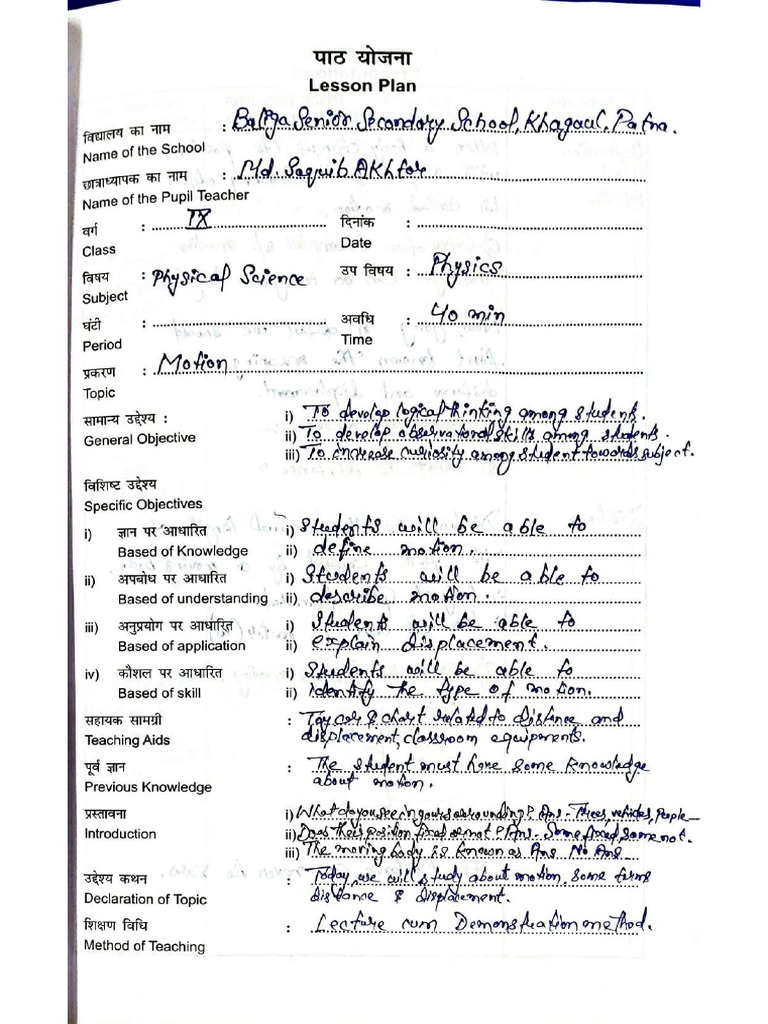 पाठ योजना
Lesson Plan
विद्यालय का नाम : Baliga Senior Secondary School, Khagaul, Patna.
Name of the School
छात्राध्यापक का नाम : Md. Saquib Akhtar
Name of the Pupil Teacher
वर्ग : IX दिनांक :
Class Date
विषय : Physical Science उप विषय : Physics
Subject
घंटी : अवधि : 40 min
Period Time
प्रकरण : Motion
Topic
सामान्य उद्देश्य : i) To develop logical thinking among students.
General Objective ii) To develop observational skills among students.
iii) To increase curiosity among student towards subject.
विशिष्ट उद्देश्य
Specific Objectives
i) ज्ञान पर आधारित i) Students will be able to
Based of Knowledge ii) define motion.
ii) अपबोध पर आधारित i) Students will be able to
Based of understanding ii) describe motion.
iii) अनुप्रयोग पर आधारित i) Students will be able to
Based of application ii) explain displacement.
iv) कौशल पर आधारित i) Students will be able to
Based of skill ii) identify the type of motion.
सहायक सामग्री : Toy car & chart related to distance and
Teaching Aids displacement, classroom equipments.
पूर्व ज्ञान : The student must have some knowledge
Previous Knowledge about motion.
प्रस्तावना i) What do you see in your surrounding? Ans - Trees, vehicles, People
Introduction ii) Does their position fixed or not? Ans - Some fixed, some not.
iii) The moving body is known as Ans No Ans
उद्देश्य कथन : Today, we will study about motion, some terms
Declaration of Topic distance & displacement.
शिक्षण विधि : Lecture cum Demonstration method.
Method of Teaching